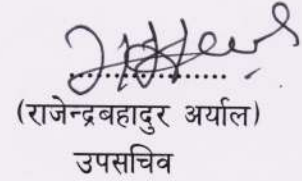 (राजेन्द्रबहादुर अर्याल)
उपसचिव